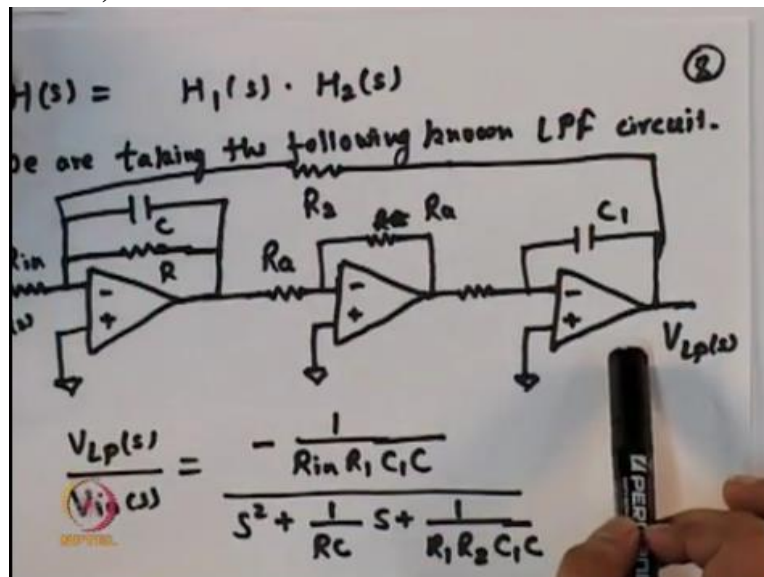 H(s) = H₁(s) · H₂(s)
⑧
we are taking the following known LPF circuit.
R₂
C
R
Rin
Ra
Ra
C₁
-
+
-
+
-
+
V_Lp(s)
V_Lp(s) / Vin(s) = - 1/(Rin R₁ C₁ C) / (s² + 1/(RC) s + 1/(R₁ R₂ C₁ C))
NPTEL
PERMANENT